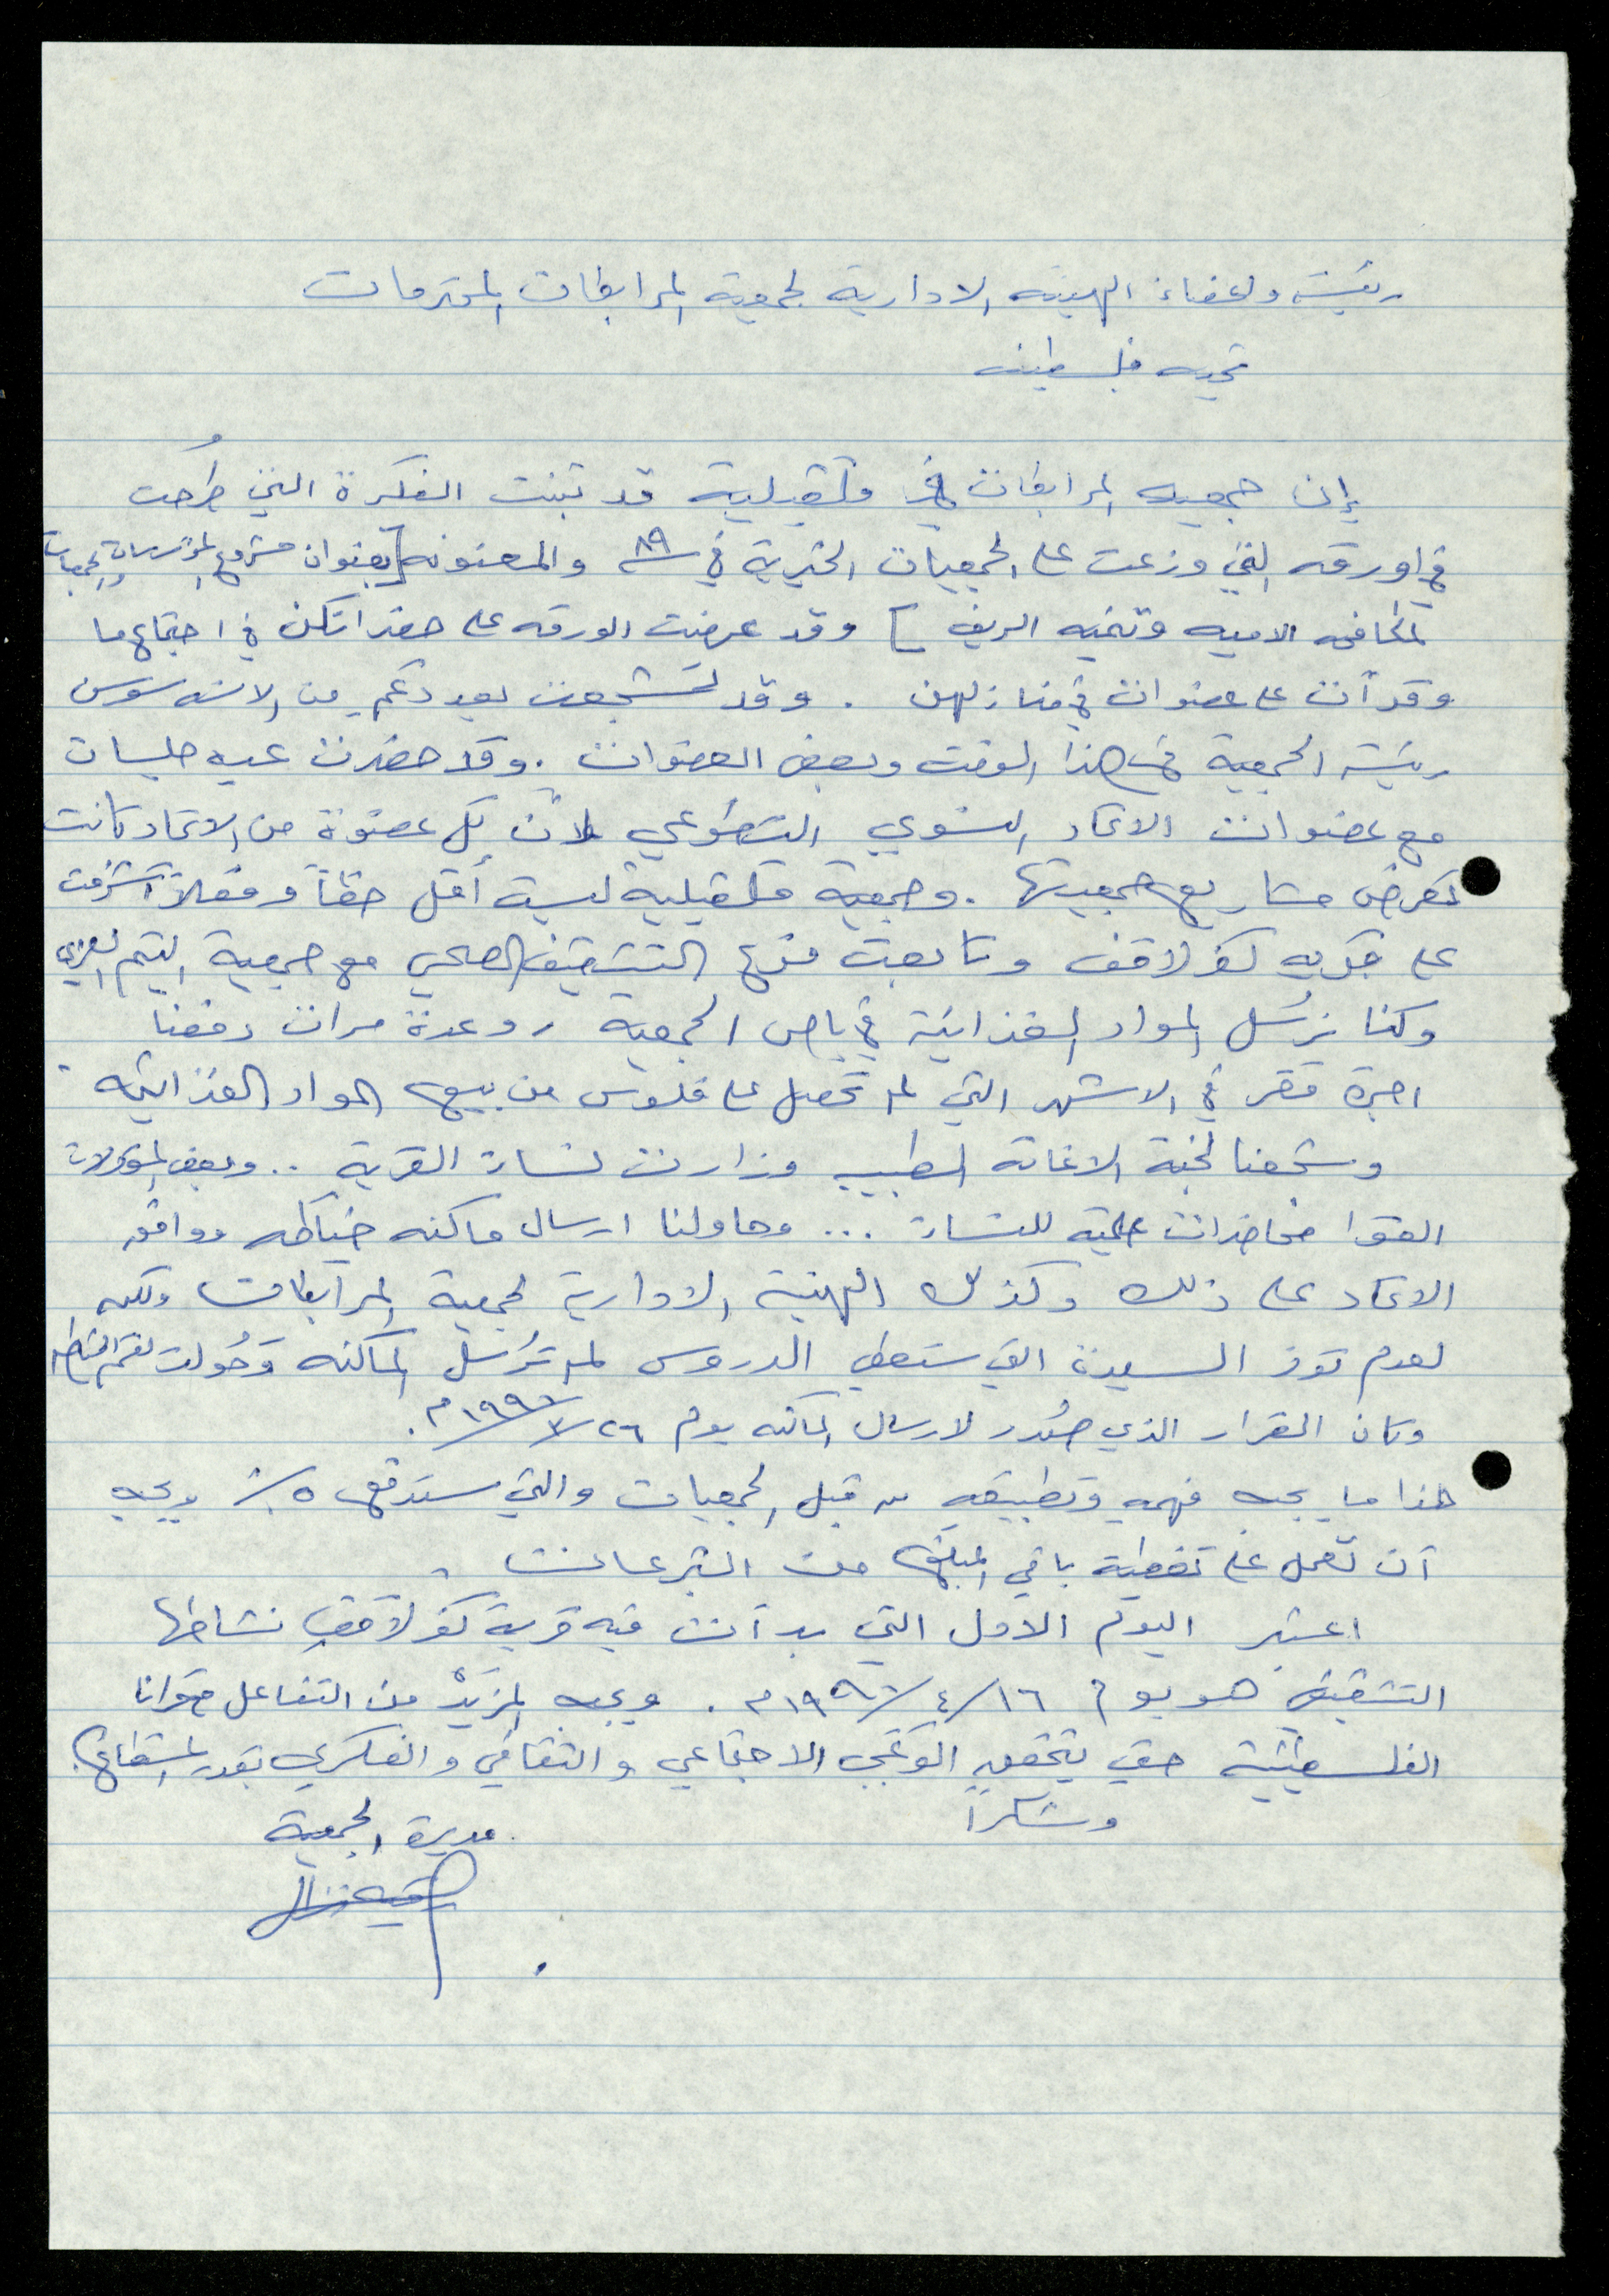 رئيسة واعضاء الهيئة الادارية لجمعية المرابطات المحترمات
تحيه فلسطينيه
إن جمعيه المرابطات في قلقيلية قد تبنت الفكرة التي طُرحت
في اورقه التي وزعت على الجمعيات الخيرية في والمعنونه [بعنوان مشروع المؤسسات والجمعيات
لمكافحه الاميه وتنميه الريف] وقد عرضت الورقه على حضراتكن في اجتماع ما
وقرأت على عضوات في منازلهن . وقد تشجعت بعد دعم من الانسه سوسن
رئيسة الجمعية في هذا الوقت وبعض العضوات . وقد حضرت عدة جلسات
مع عضوات الاتحاد النسوي التطوعي لأن كل عضوة من الاتحاد كانت
تعرض مشاريع جمعيتها . وجمعية قلقيلية ليست أقل حقاً وفعلاً أشرفت
على قريه كفر لاقف وتابعت فرع التثقيف الصحي مع جمعية اليتم العربي
وكنا نرسُل المواد الغذائية في باص الجمعية وعدة مرات دفعنا
اجرة في الاشهر التي لم تحصل على فلوس من بيع المواد الغذائيه .
وشجعنا لجنة الاغاثة الطبيه وزارت نساء القرية .. وبعض المسؤولات
القوا محاضرات علمية للنساء ... وحاولنا ارسال ماكنه خياطه ووافق
الاتحاد على ذلك وكذلك الهيئة الادارية لجمعية المرابطات ولكن
لعدم توفر السيدة التي ستعطي الدروس لم تُرسل الماكنه وحُولت لقسم الخياطه
وكان القرار الذي صُدر لارسال الماكنه يوم ٢٦/٧/١٩٩٦م.
هذا ما يجب فهمه وتطبيقه من قبل الجمعيات والتي ستدفع ٥٪ ويجب
أن تعمل على تغطية باقي المبلغ من التبرعات .
اعتبر اليوم الاول التي بدأت فيه قرية كفر لاقف نشاطها
التثقيفي هو يوم ١٦/٤/١٩٨٦م . ويجب المزيد من التفاعل مع قرانا
الفلسطينية حتى يتحقق الوعي الاجتماعي والثقافي والفكري بقدر المستطاع.
وشكراً
مديرة الجمعية